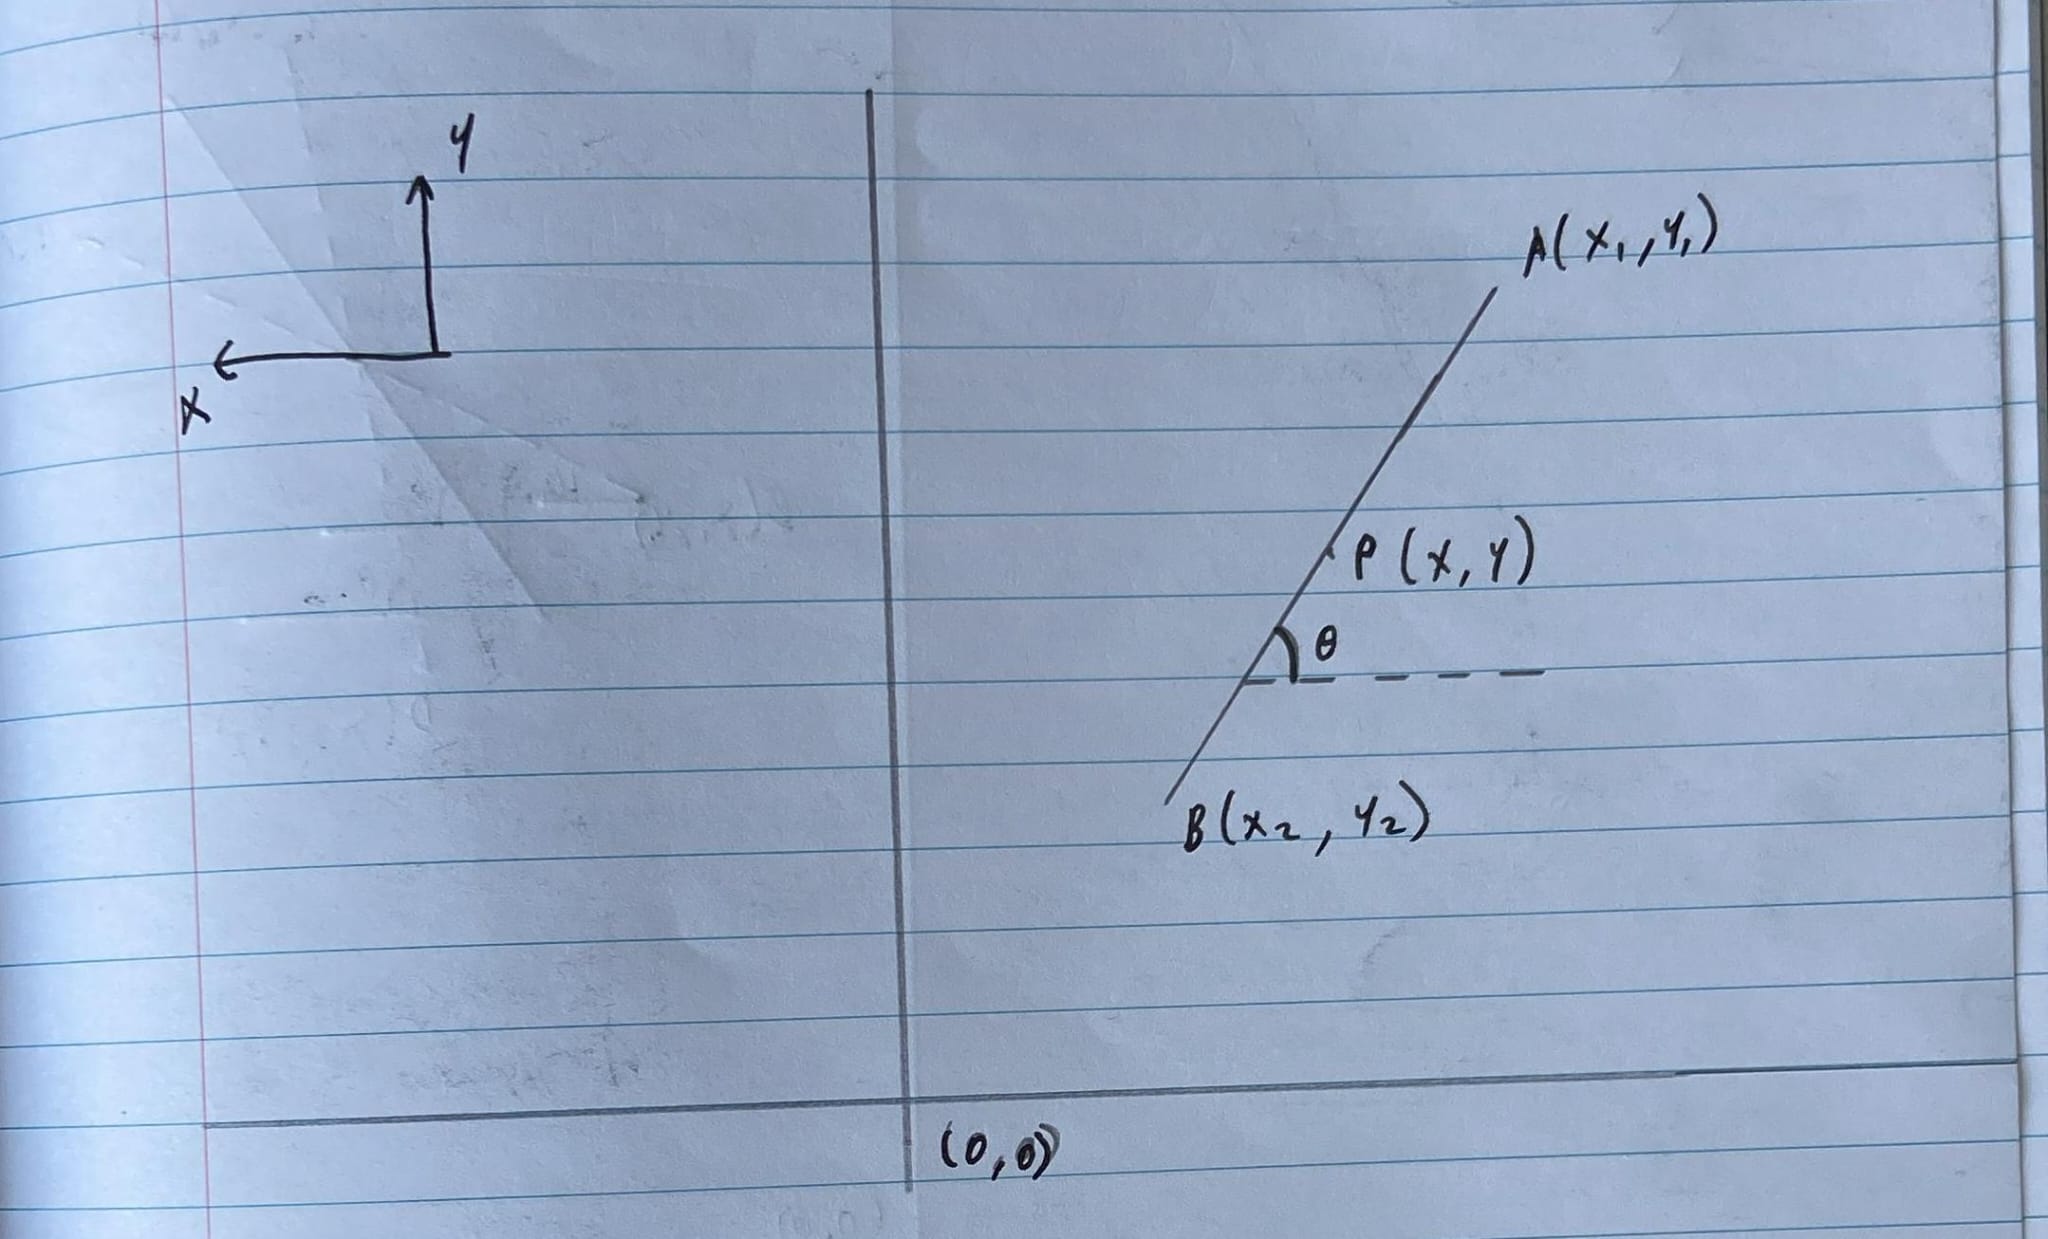 y
x
A(x₁, y₁)
P(x, y)
θ
B(x₂, y₂)
(0,0)